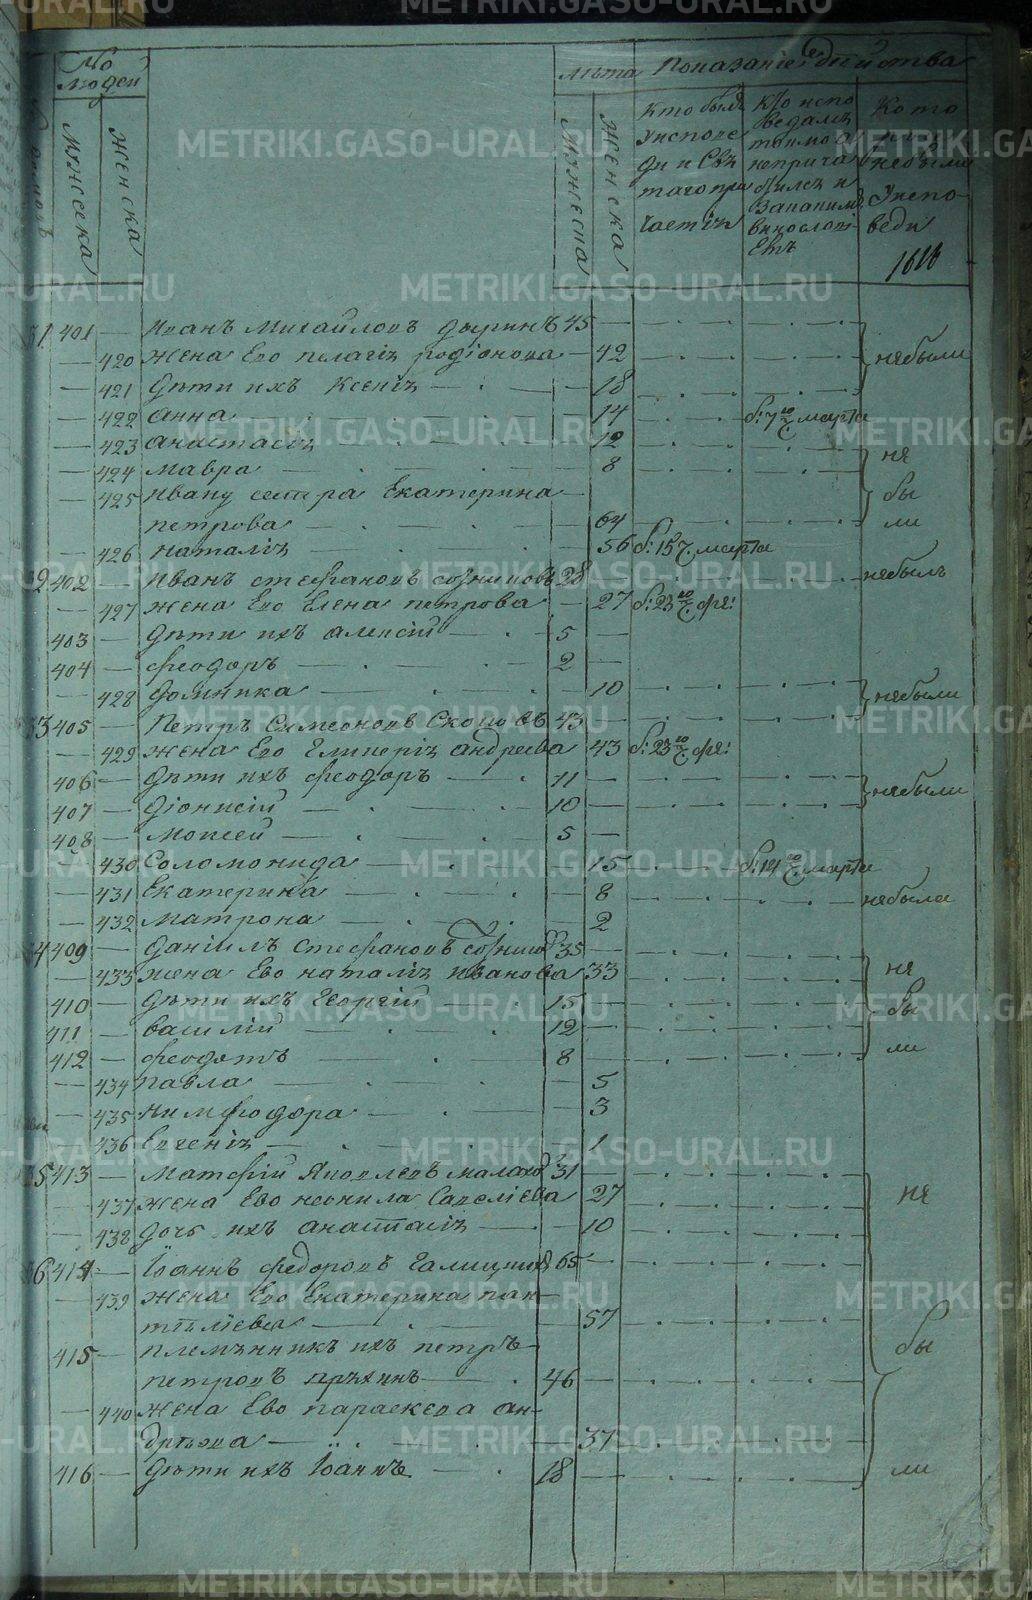 METRIKI.GASO-URAL.RU
No людей
Лѣта Показаніе действа
домовъ
Мужеска
Женска
Мужеска
Женска
Кто былъ у исповеди и Свѣ таго при частіѧ
Кто испо ведалъ токмо а непричастилсѧ и за какимъ винословіемъ
Кто то не были у испо- веди
401 — Иванъ Михайловъ 45 — — . — . —
— 420 жена Ево пелагіѧ родіонова — 42 небыли
— 421 дѣти ихъ Ксеніѧ — . — 18
— 422 анна — . — 14 б: 7го марта
— 423 анастасіѧ — . — 12 не
— 424 мавра — . — 8
— 425 ивану сестра Екатерина — бы
петрова — . — 64 ли
— 426 наталіѧ — . — 56 б: 15г. марта
402 — иванъ стефановъ 28 небылъ
— 427 жена Ево Елена петрова — 27 б: 23го фе:
403 — дѣти ихъ алексій — . — 5 —
404 — феодоръ — . — 2 —
— 428 домника — . — 10 небыли
405 — Петръ Симеоновъ 43
— 429 жена Ево Гликеріѧ андреева 43 б: 23го фе:
406 — дѣти ихъ феодоръ — . 11 —
407 — діонисій — . — 10 — небыли
408 — моисей — . — 5 —
— 430 Соломонида — . — 15 б: 14го марта
— 431 Екатерина — . — 8 небыла
— 432 матрона — . — 2
409 — даніилъ стефановъ 35 —
— 433 жена Ево наталіѧ иванова 33 не
410 — дѣти ихъ Георгій — . 15 —
411 — василій — . — 12 — бы
412 — феодотъ — . 8 — ли
— 434 павла — . — 5
— 435 нимфодора — . — 3
— 436 Евгеніѧ — . — 1
413 — Матфей Яковлевъ 31 —
— 437 жена Ево неонила Савеліева 27 не
— 438 дочь ихъ анастасіѧ — . — 10
414 — Іоаннъ федоровъ 65 —
— 439 жена Ево Екатерина пан-
тѣлѣева — . — 57
415 — племѣнникъ ихъ петръ бы
петровъ — . 46 —
— 440 жена Ево параскева ан-
дрѣева — . — 37
416 — дѣти ихъ Іоаннъ — . 18 — ли